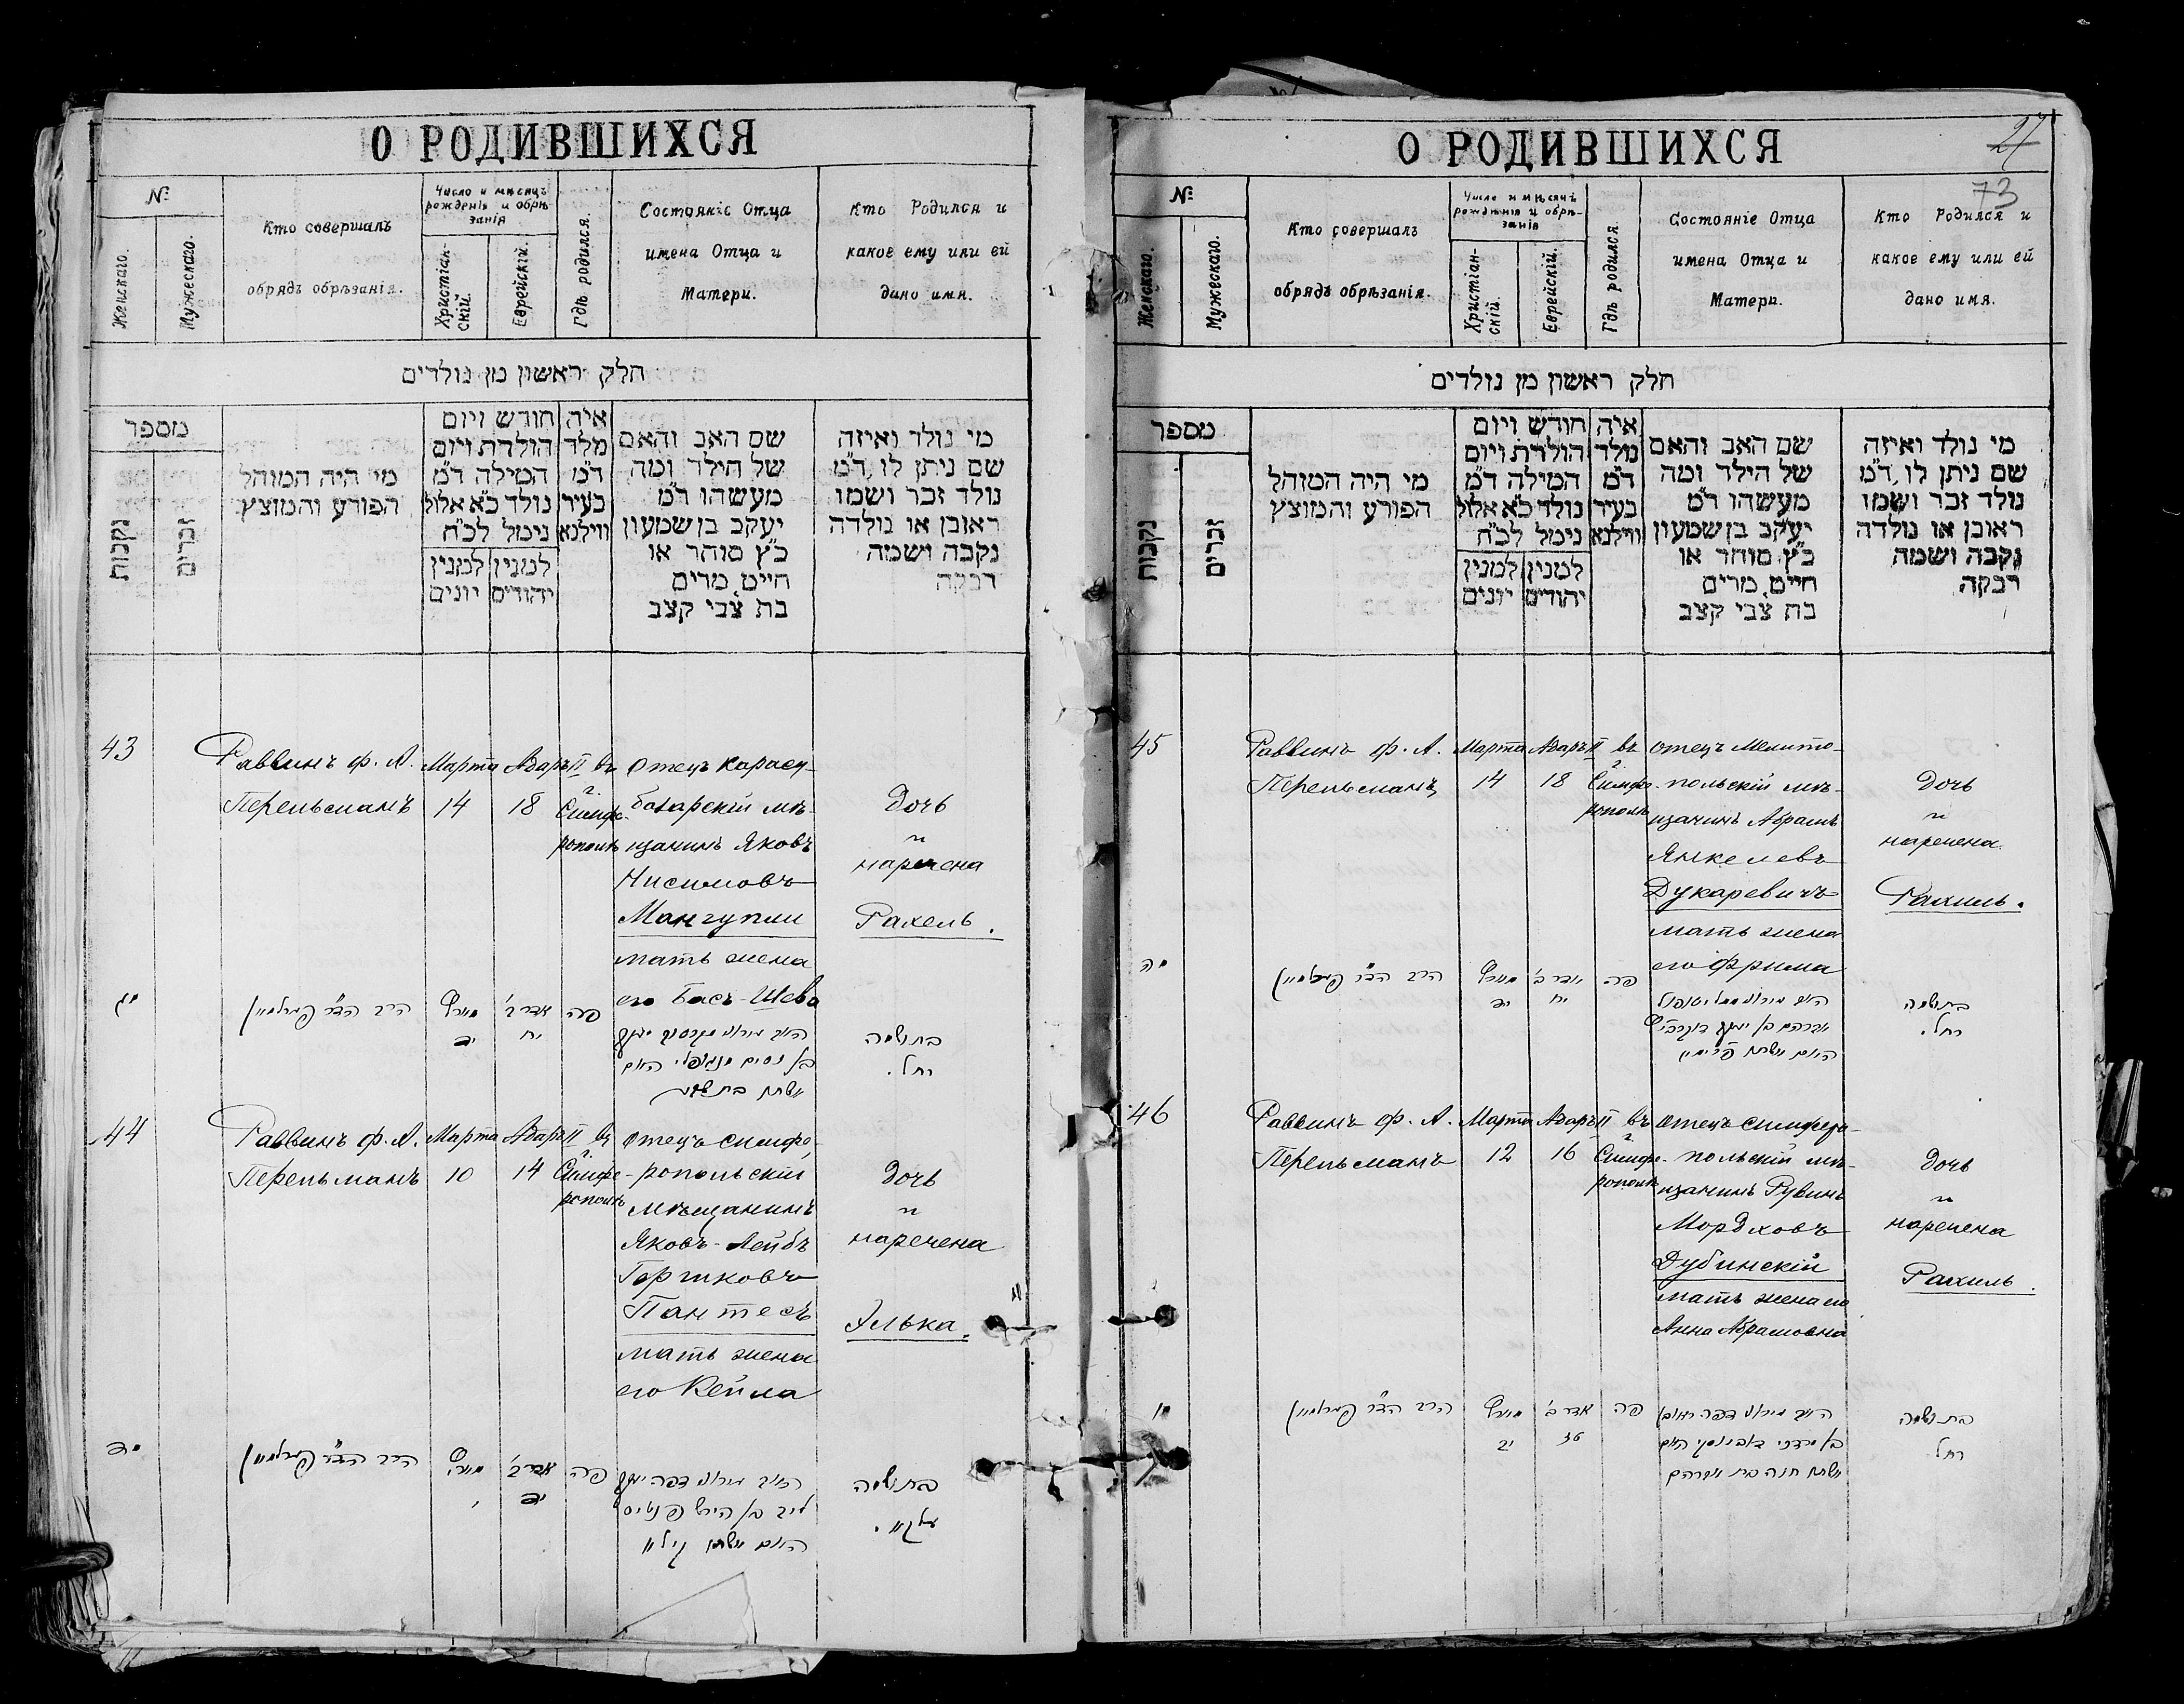 О РОДИВШИХСЯ
№
Женскаго.
Мужескаго.
Кто совершалъ
обрядъ обрѣзанія.
Число и мѣсяцъ
рожденія и обрѣ-
занія
Христіан-
скій.
Еврейскій.
Гдѣ родился.
Состояніе Отца
имена Отца и
Матери.
Кто Родился и
какое ему или ей
дано имя.
חלק ראשון מן נולדים
מספר
נקבות
זכרים
מי היה המוהל
הפורע והמוצץ
חודש ויום
הולדת ויום
המילה ד״מ
נולד כ״א אלול
נימל לכ״ח
למנין
יונים
למנין
יהודים
איה
נולד
ד״מ
בעיר
ווילנא
שם האב והאם
של הילד ומה
מעשהו ד״מ
יעקב בן שמעון
כ״ץ סוחר או
חייט מרים
בת צבי קצב
מי נולד ואיזה
שם ניתן לו ד״מ
נולד זכר ושמו
ראובן או נולדה
נקבה ושמה
רבקה
43
Раввинъ ф. А.
Перельманъ
Марта
14
Адаръ II
18
въ
г.
Симфе-
рополѣ
отецъ карасу-
базарскій мѣ-
щанинъ Яковъ
Нисимовъ
Мангупли
мать жена
его Басъ-Шева
Дочь
и
наречена
Рахель.
מג
הרב הד״ר פערלמאן
מארץ
יד
אדר ב׳
יח
פה
בת ושמה
רחל.
44
Раввинъ ф. А.
Перельманъ
Марта
10
Адаръ II
14
въ
г.
Симфе-
рополѣ
отецъ симфе-
ропольскій
мѣщанинъ
Яковъ-Лейбъ
Гершковъ
Пантесъ
мать жена
его Кейла
Дочь
и
наречена
Элька.
מד
הרב הד״ר פערלמאן
מארץ
י
אדר ב׳
יד
פה
בת ושמה
עלקא.
О РОДИВШИХСЯ
27
73
№
Женскаго.
Мужескаго.
Кто совершалъ
обрядъ обрѣзанія.
Число и мѣсяцъ
рожденія и обрѣ-
занія
Христіан-
скій.
Еврейскій.
Гдѣ родился.
Состояніе Отца
имена Отца и
Матери.
Кто Родился и
какое ему или ей
дано имя.
חלק ראשון מן נולדים
מספר
נקבות
זכרים
מי היה המוהל
הפורע והמוצץ
חודש ויום
הולדת ויום
המילה ד״מ
נולד כ״א אלול
נימל לכ״ח
למנין
יונים
למנין
יהודים
איה
נולד
ד״מ
בעיר
ווילנא
שם האב והאם
של הילד ומה
מעשהו ד״מ
יעקב בן שמעון
כ״ץ סוחר או
חייט מרים
בת צבי קצב
מי נולד ואיזה
שם ניתן לו ד״מ
נולד זכר ושמו
ראובן או נולדה
נקבה ושמה
רבקה
45
Раввинъ ф. А.
Перельманъ
Марта
14
Адаръ II
18
въ
г.
Симфе-
рополѣ
отецъ Мелито-
польскій мѣ-
щанинъ Абрамъ
Янкелевъ
Дукаревичъ
мать жена
его Фрима
Дочь
и
наречена
Рахиль.
מה
הרב הד״ר פערלמאן
מארץ
יד
אדר ב׳
יח
פה
בת ושמה
רחל.
46
Раввинъ ф. А.
Перельманъ
Марта
12
Адаръ II
16
въ
г.
Симфе-
рополѣ
отецъ симферо-
польскій мѣ-
щанинъ Рувинъ
Мордховъ
Дубинскій
мать жена его
Анна Абрамовна
Дочь
и
наречена
Рахиль.
הרב הד״ר פערלמאן
מארץ
יב
אדר ב׳
טז
פה
בן מרדכי דובינסקי האם
אשתו חנה בת אברהם
בת ושמה
רחל